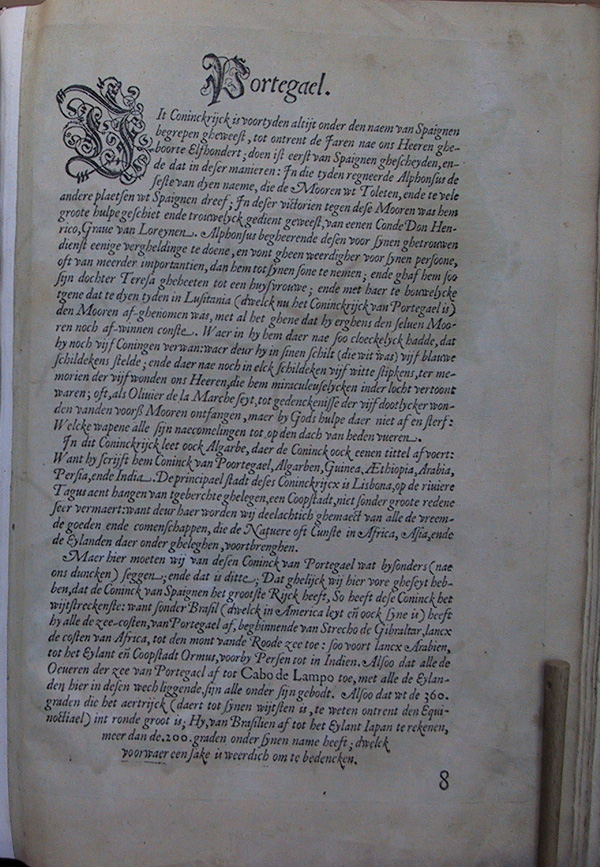 Portegael.
DIt Coninckrijck is voortyden altijt onder den naem van Spaignen
begrepen gheweest, tot ontrent de Jaren nae ons Heeren ghe-
boorte Elfhondert; doen ist eerst van Spaignen ghescheyden, en-
de dat in deser manieren: In die tyden regneerde Alphonsus de
seste van dyen naeme, die de Mooren wt Toleten, ende te vele
andere plaetsen wt Spaignen dreef; In deser victorien tegen dese Mooren was hem
groote hulpe geschiet ende trouwelyck gedient geweest, van eenen Conde Don Hen-
rico, Graue van Loreynen. Alphonsus begheerende desen voor synen ghetrouwen
dienst eenige vergheldinge te doene, en vont gheen weerdigher voor synen persoone,
oft van meerder importantien, dan hem tot synen sone te nemen; ende ghaf hem soo
sijn dochter Teresa gheheeten tot een huysvrouwe; ende met haer te houwelycke
tgene dat te dyen tyden in Lusitania (dwelck nu het Coninckrijck van Portegael is)
den Mooren af-ghenomen was, met al het ghene dat hy erghens den seluen Moo-
ren noch af-winnen conste. Waer in hy hem daer nae soo cloeckelyck hadde, dat
hy noch vijf Coningen verwan: waer deur hy in sinen schilt (die wit was) vijf blauwe
schildekens stelde; ende daer nae noch in elck schildeken vijf witte stipkens, ter me-
morien der vijf wonden ons Heeren, die hem miraculeuselycken inder locht vertoont
waren; oft, als Oliuier de la Marche seyt, tot gedenckenisse der vijf dootlycker won-
den vanden voorß Mooren ontfangen, maer by Gods hulpe daer niet af en sterf:
Welcke wapene alle sijn naecomelingen tot op den dach van heden vueren.
In dit Coninckrijck leet oock Algarbe, daer de Coninck oock eenen tittel af voert:
Want hy scrijft hem Coninck van Poortegael, Algarben, Guinea, Æthiopia, Arabia,
Persia, ende India. De principael stadt deses Coninckrijcx is Lisbona, op de riuiere
Tagus aent hangen van tgeberchte ghelegen, een Coopstadt, niet sonder groote redene
seer vermaert: want deur haer worden wij deelachtich ghemaect van alle de vreem-
de goeden ende comenschappen, die de Natuere oft Cunste in Africa, Asia, ende
de Eylanden daer onder gheleghen, voortbrenghen.
Maer hier moeten wij van desen Coninck van Portegael wat bysonders (nae
ons duncken) seggen; ende dat is ditte; Dat ghelijck wij hier vore gheseyt heb-
ben, dat de Coninck van Spaignen het grootste Rijck heeft, So heeft dese Coninck het
wijtstreckenste: want sonder Brasil (dwelck in America leyt eñ oock syne is) heeft
hy alle de zee-costen, van Portegael af, beghinnende van Strecho de Gibraltar, lancx
de costen van Africa, tot den mont vande Roode zee toe: soo voort lancx Arabien,
tot het Eylant eñ Coopstadt Ormus, voorby Persen tot in Indien. Alsoo dat alle de
Oeueren der zee van Portegael af tot Cabo de Lampo toe, met alle de Eylan-
den hier in desen wech liggende, sijn alle onder sijn gebodt. Alsoo dat wt de 360.
graden die het aertrijck (daert tot sijnen wijtsten is, te weten ontrent den Equi-
noctiael) int ronde groot is; Hy, van Brasilien af tot het Eylant Iapan te rekenen,
meer dan de .200. graden onder synen name heeft; dwelck
voorwaer een sake is weerdich om te bedencken.
8